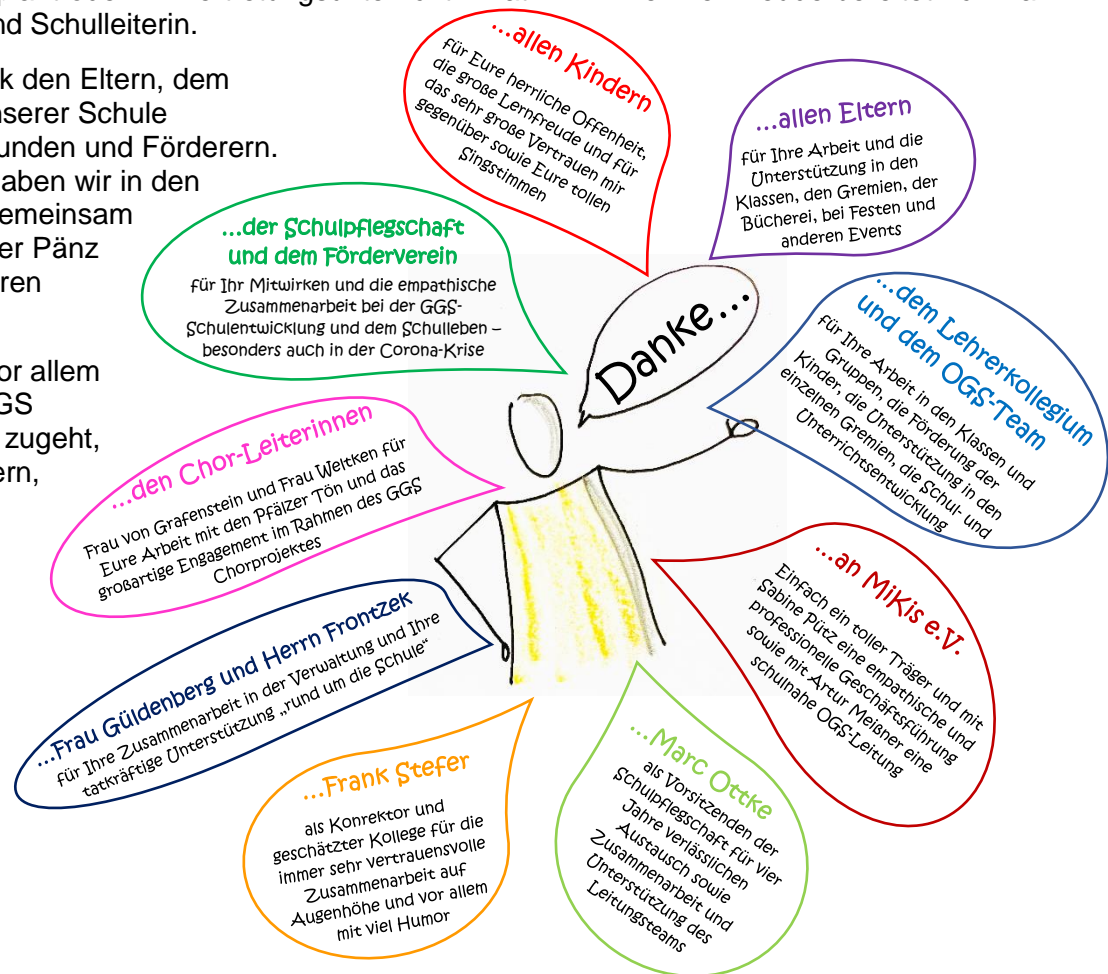 nd Schulleiterin.
k den Eltern, dem
nserer Schule
unden und Förderern.
aben wir in den
emeinsam
er Pänz
ren
or allem
GS
zugeht,
ern,
Danke...
...allen Kindern
für Eure herrliche Offenheit,
die große Lernfreude und für
das sehr große Vertrauen mir
gegenüber sowie Eure tollen
Singstimmen
...allen Eltern
für Ihre Arbeit und die
Unterstützung in den
Klassen, den Gremien, der
Bücherei, bei Festen und
anderen Events
...dem Lehrerkollegium
und dem OGS-Team
für Ihre Arbeit in den Klassen und
Gruppen, die Förderung der
Kinder, die Unterstützung in den
einzelnen Gremien, die Schul- und
Unterrichtsentwicklung
...an MiKis e.V.
Einfach ein toller Träger und mit
Sabine Pütz eine empathische und
professionelle Geschäftsführung
sowie mit Artur Meißner eine
schulnahe OGS-Leitung
...Marc Ottke
als Vorsitzenden der
Schulpflegschaft für vier
Jahre verlässlichen
Austausch sowie
Zusammenarbeit und
Unterstützung des
Leitungsteams
...Frank Stefer
als Konrektor und
geschätzter Kollege für die
immer sehr vertrauensvolle
Zusammenarbeit auf
Augenhöhe und vor allem
mit viel Humor
...Frau Güldenberg und Herrn Frontzek
für Ihre Zusammenarbeit in der Verwaltung und Ihre
tatkräftige Unterstützung „rund um die Schule“
...den Chor-Leiterinnen
Frau von Grafenstein und Frau Weltken für
Eure Arbeit mit den Pfälzer Tön und das
großartige Engagement im Rahmen des GGS
Chorprojektes
...der Schulpflegschaft
und dem Förderverein
für Ihr Mitwirken und die empathische
Zusammenarbeit bei der GGS-
Schulentwicklung und dem Schulleben –
besonders auch in der Corona-Krise